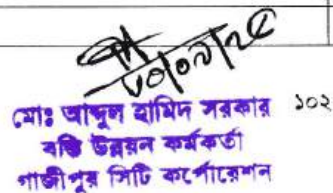 মোঃ আব্দুল হামিদ সরকার ১০২
বস্তি উন্নয়ন কর্মকর্তা
গাজীপুর সিটি কর্পোরেশন